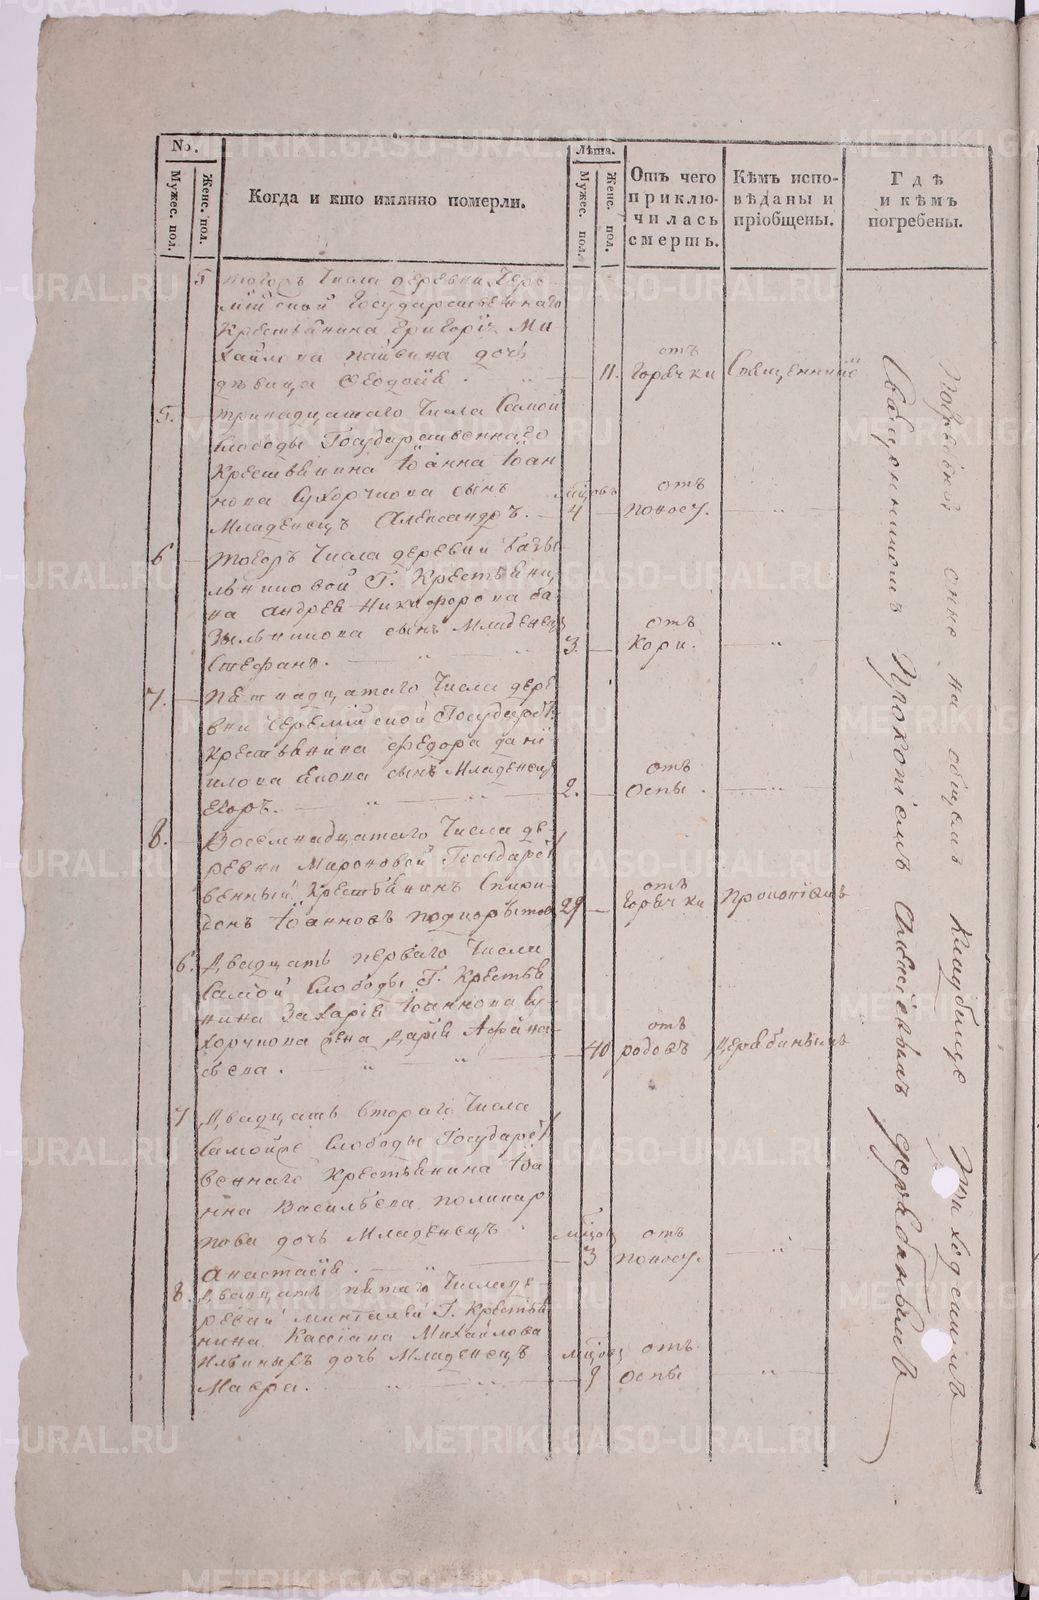 No.
Мужес. пол.
Женс. пол.
Когда и кто имянно померли.
Лѣта.
Мужес. пол.
Женс. пол.
Отъ чего
приклю-
чилась
смерть.
Кѣмъ испо-
вѣданы и
пріобщены.
Гдѣ
и кѣмъ
погребены.
5 тогоръ Числа деревни Чере-
мійской Государственнаго
Крестьянина Григорія Ми
хайлова дочь
дѣвица Ѳеодосія. 11. отъ Горячки Священникъ
5. тринадцатаго Числа Самой
Слободы Государственнаго
Крестьянина Іоанна Іоан
нова сынъ
Младенецъ Александръ. мѣцовъ 4 отъ поносу.
6 тогоръ Числа деревни Базы
льниковой Г. Крестьяни
на Андрея Никифорова ба
зыльникова сынъ Младенецъ
Стефанъ. 3. отъ Кори.
7. пятнадцатаго Числа дере
вни Черемійской Государст.
Крестьянина Федора Дані
илова сынъ Младенецъ
Егоръ. 2. отъ Оспы.
8. Восемнадцатаго Числа де-
ревни Мироновой Государст
венный Крестьянинъ Спири
донъ Іоанновъ 29 отъ Горячки Прокопіемъ
6. Двадцать перваго Числа
Самой Слободы Г. Крестья
нина Захарія Іоаннова Су
хорчкова жена Дарія Афана-
сьева. 40 отъ родовъ Дерябинымъ
7 Двадцать втораго Числа
Самойже Слободы Государст
веннаго Крестьянина Іоа
нна Васильева поликар
пова дочь Младенецъ
Анастасія. мѣцовъ 3 отъ поносу.
8. Двадцать пятаго Числа де-
ревни Г. Крестья
нина Кассіана Михайлова
Ильиныхъ дочь Младенецъ
Мавра. мѣцовъ 9 отъ Оспы
на общемъ Кладбище Приходскимъ
Священникомъ Прокопіемъ Дерябинымъ
METRIKI.GASO-URAL.RU